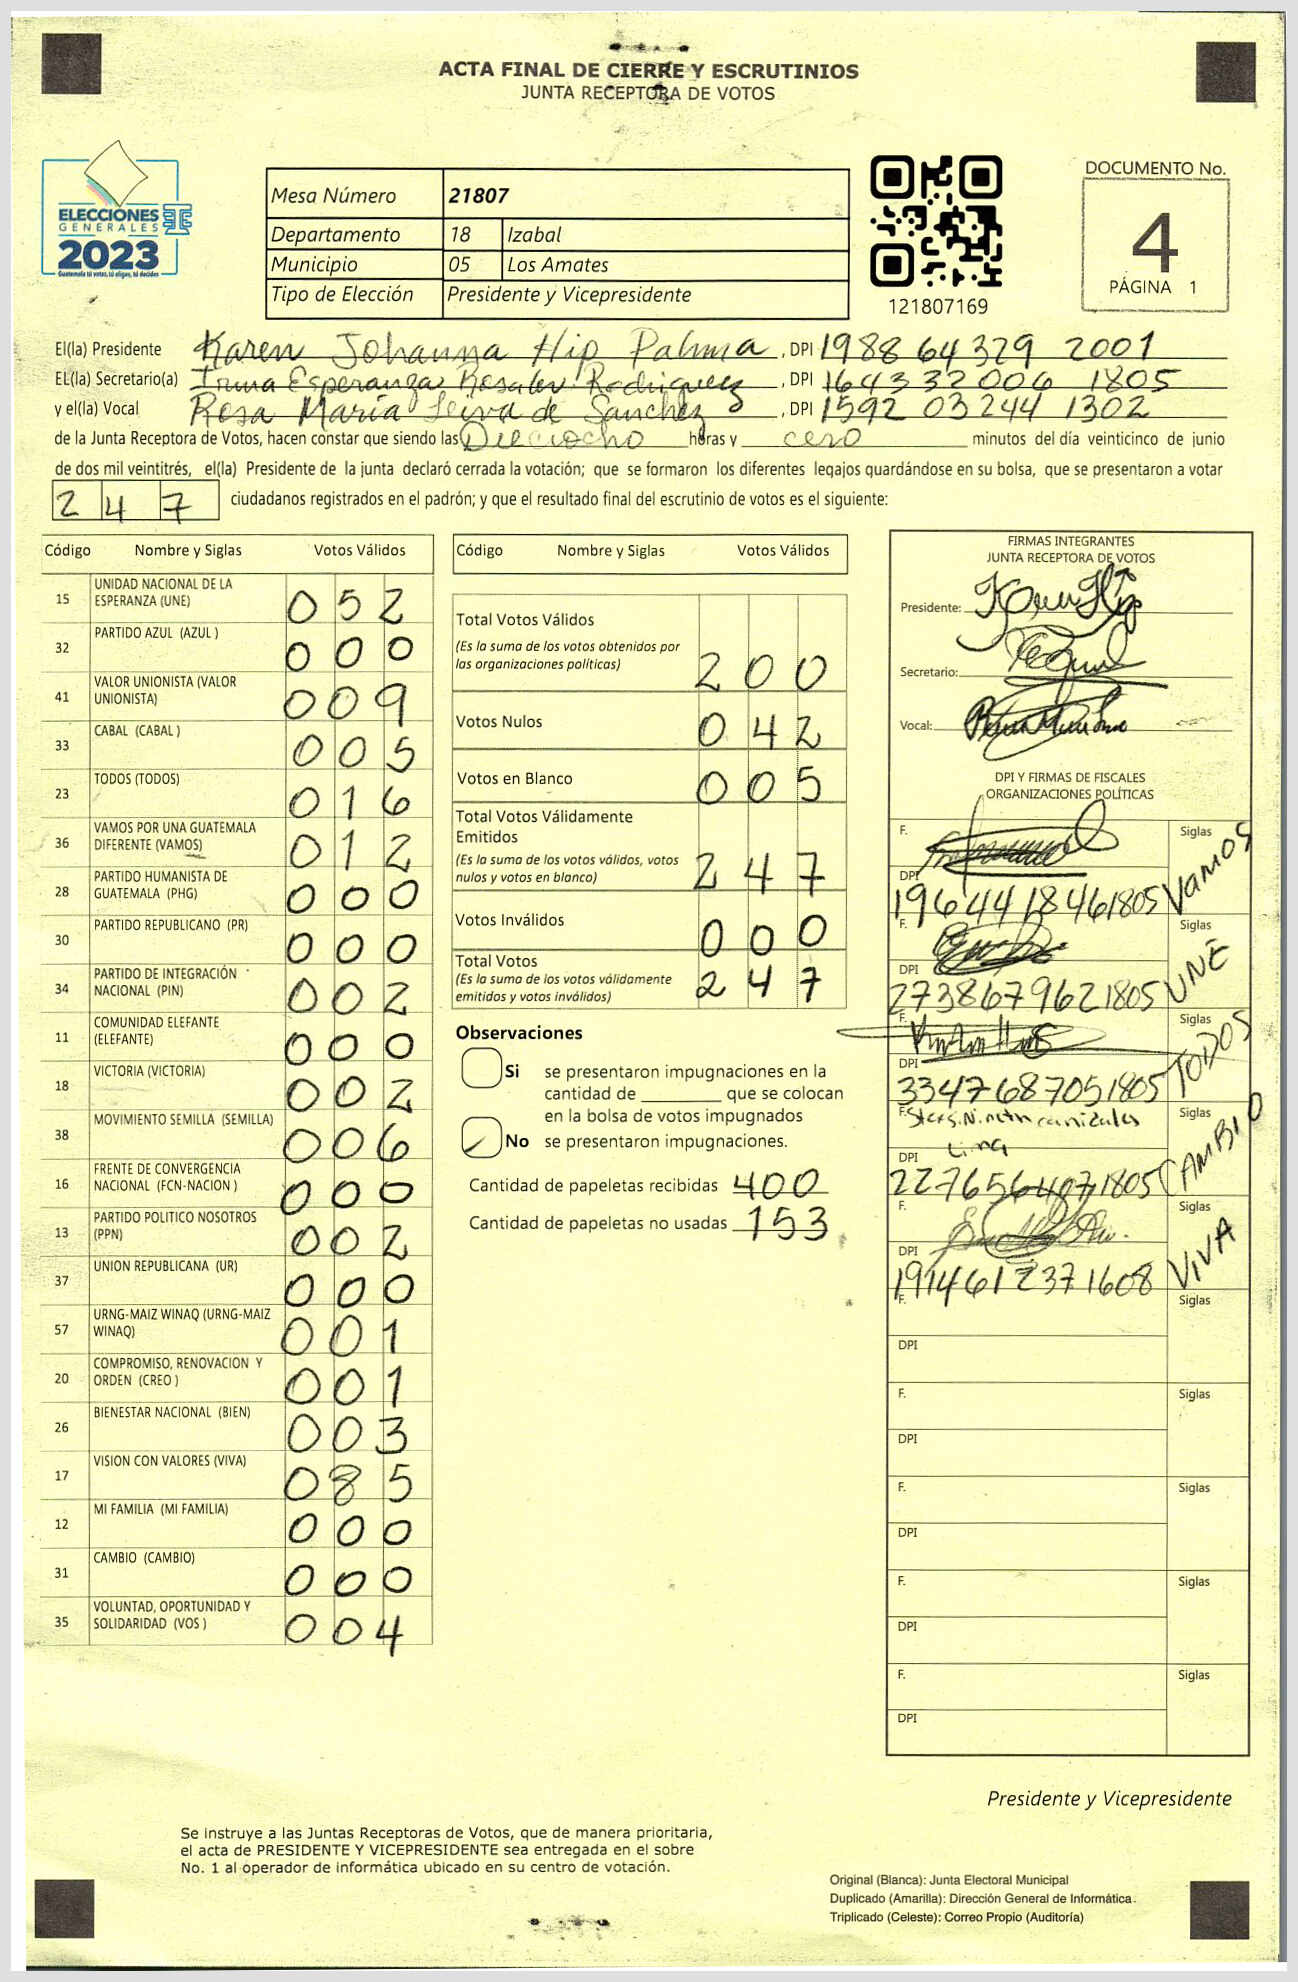 ACTA FINAL DE CIERRE Y ESCRUTINIOS
JUNTA RECEPTORA DE VOTOS
ELECCIONES
GENERALES
2023
Guatemala tú votas, tú eliges, tú decides
Mesa Número 21807
Departamento 18 Izabal
Municipio 05 Los Amates
Tipo de Elección Presidente y Vicepresidente
121807169
DOCUMENTO No.
4
PÁGINA 1
El(la) Presidente Karen Johanna Hip Palma , DPI 1988 64329 2001
EL(la) Secretario(a) Irma Esperanza Rosales Rodriguez , DPI 1643 32006 1805
y el(la) Vocal Rosa María Leiva de Sanchez , DPI 1592 03244 1302
de la Junta Receptora de Votos, hacen constar que siendo las Dieciocho horas y cero minutos del día veinticinco de junio
de dos mil veintitrés, el(la) Presidente de la junta declaró cerrada la votación; que se formaron los diferentes legajos guardándose en su bolsa, que se presentaron a votar
247 ciudadanos registrados en el padrón; y que el resultado final del escrutinio de votos es el siguiente:
Código Nombre y Siglas Votos Válidos
15 UNIDAD NACIONAL DE LA ESPERANZA (UNE) 052
32 PARTIDO AZUL (AZUL ) 000
41 VALOR UNIONISTA (VALOR UNIONISTA) 009
33 CABAL (CABAL ) 005
23 TODOS (TODOS) 016
36 VAMOS POR UNA GUATEMALA DIFERENTE (VAMOS) 012
28 PARTIDO HUMANISTA DE GUATEMALA (PHG) 000
30 PARTIDO REPUBLICANO (PR) 000
34 PARTIDO DE INTEGRACIÓN NACIONAL (PIN) 002
11 COMUNIDAD ELEFANTE (ELEFANTE) 000
18 VICTORIA (VICTORIA) 002
38 MOVIMIENTO SEMILLA (SEMILLA) 006
16 FRENTE DE CONVERGENCIA NACIONAL (FCN-NACION ) 000
13 PARTIDO POLITICO NOSOTROS (PPN) 002
37 UNION REPUBLICANA (UR) 000
57 URNG-MAIZ WINAQ (URNG-MAIZ WINAQ) 001
20 COMPROMISO, RENOVACION Y ORDEN (CREO ) 001
26 BIENESTAR NACIONAL (BIEN) 003
17 VISION CON VALORES (VIVA) 085
12 MI FAMILIA (MI FAMILIA) 000
31 CAMBIO (CAMBIO) 000
35 VOLUNTAD, OPORTUNIDAD Y SOLIDARIDAD (VOS ) 004
Código Nombre y Siglas Votos Válidos
Total Votos Válidos
(Es la suma de los votos obtenidos por
las organizaciones políticas) 200
Votos Nulos 042
Votos en Blanco 005
Total Votos Válidamente
Emitidos
(Es la suma de los votos válidos, votos
nulos y votos en blanco) 247
Votos Inválidos 000
Total Votos
(Es la suma de los votos válidamente
emitidos y votos inválidos) 247
Observaciones
Si se presentaron impugnaciones en la
cantidad de ________ que se colocan
en la bolsa de votos impugnados
No se presentaron impugnaciones.
Cantidad de papeletas recibidas 400
Cantidad de papeletas no usadas 153
FIRMAS INTEGRANTES
JUNTA RECEPTORA DE VOTOS
Presidente:
Secretario:
Vocal:
DPI Y FIRMAS DE FISCALES
ORGANIZACIONES POLÍTICAS
F. Siglas VAMOS
DPI 1964418461805
F. Siglas UNE
DPI 2738679621805
F. Siglas TODOS
DPI 3347687051805
F. Siglas CAMBIO
DPI 2276564071805
F. Siglas VIVA
DPI 1914612371608
F. Siglas
DPI
F. Siglas
DPI
F. Siglas
DPI
F. Siglas
DPI
F. Siglas
DPI
Presidente y Vicepresidente
Se instruye a las Juntas Receptoras de Votos, que de manera prioritaria,
el acta de PRESIDENTE Y VICEPRESIDENTE sea entregada en el sobre
No. 1 al operador de informática ubicado en su centro de votación.
Original (Blanca): Junta Electoral Municipal
Duplicado (Amarilla): Dirección General de Informática.
Triplicado (Celeste): Correo Propio (Auditoría)